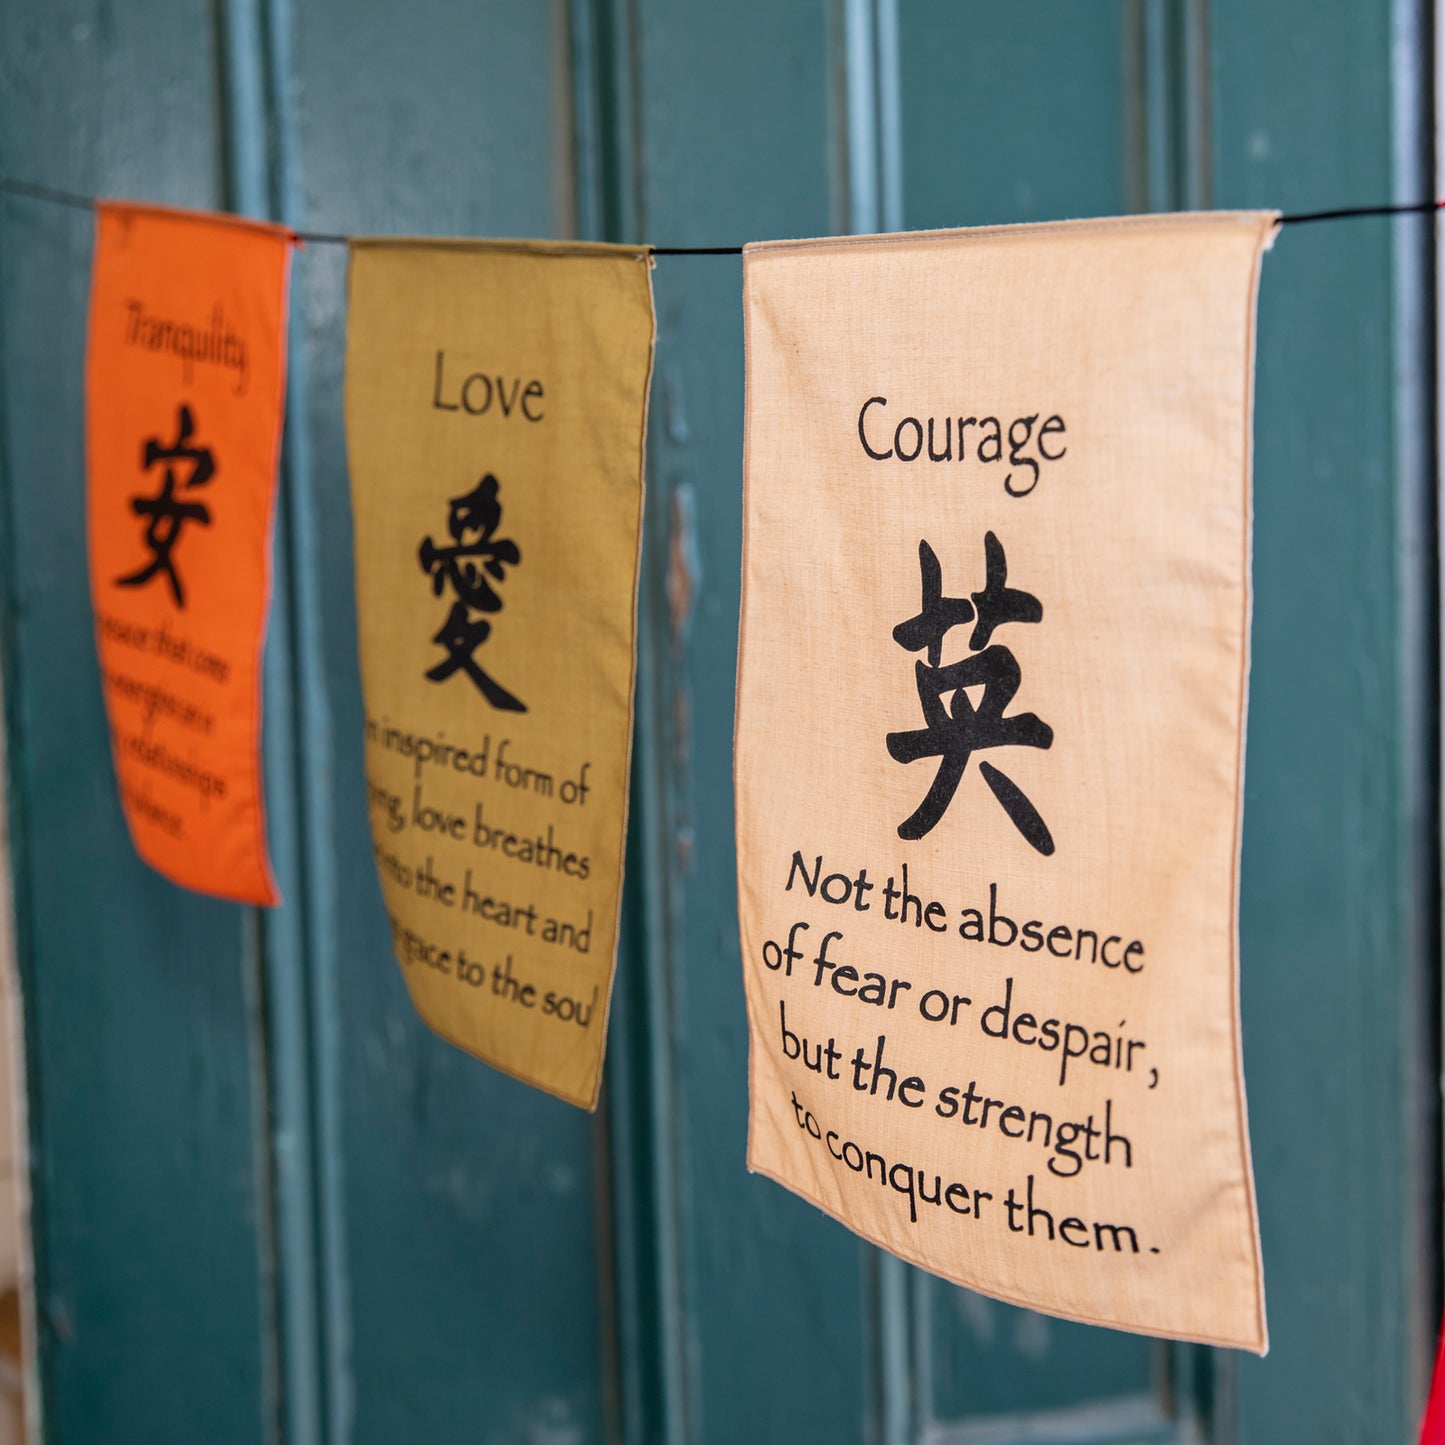 Tranquility
安
that come
energies are
relationships
Love
愛
inspired form of
love breathes
into the heart and
grace to the soul
Courage
英
Not the absence
of fear or despair,
but the strength
to conquer them.